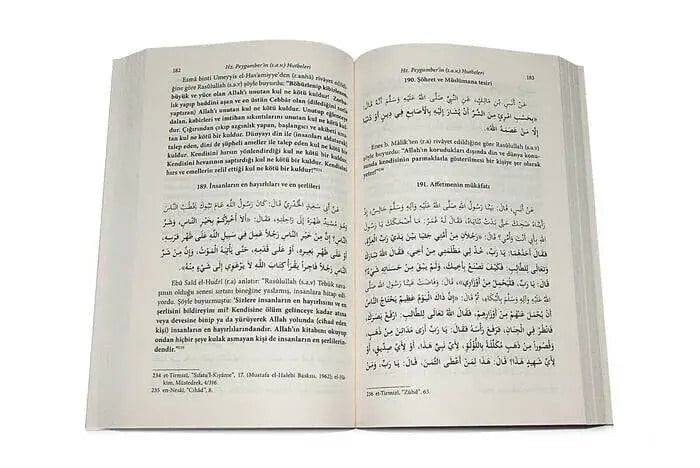 182
Hz. Peygamber'in (s.a.v.) Hutbeleri
Esmâ binti Umeyyis el-Has'amiyye'den (r.anhâ) rivâyet edildi-
ğine göre Rasûlullah (s.a.v) şöyle buyurdu: "Böbürlenip kibirlenen,
büyük ve yüce olan Allah'ı unutan kul ne kötü kuldur!
yapıp haddini aşan ve en üstün Cebbâr olan
Allah'ı unutan kul ne kötü kuldur. Unutup eğlenceye
dalan, kabirleri ve imtihan sıkıntılarını unutan kul ne kötü kul-
dur. Çığırından çıkıp azgınlık yapan, başlangıcı ve akıbeti
tan kul ne kötü bir kuldur. Dünyayı din ile
talep eden, dini de şüpheli ameller ile talep eden kul ne kötü
kuldur. Kendisini hırsın yönlendirdiği kul ne kötü bir kuldur.
Kendisini hevasının saptırdığı kul ne kötü kuldur. Kendisini
hırs ve emellerin zelil ettiği kul ne kötü bir kuldur!"
189. İnsanların en hayırlıları ve en şerlileri
عَنْ أَبِي سَعِيدٍ الْخُدْرِيِّ قَالَ: كَانَ رَسُولُ اللَّهِ عَامَ تَبُوكَ يَخْطُبُ النَّاسَ
وَهُوَ مُسْنِدٌ ظَهْرَهُ إِلَى رَاحِلَتِهِ، فَقَالَ: «أَلَا أُخْبِرُكُمْ بِخَيْرِ النَّاسِ، وَشَرِّ
النَّاسِ؟ إِنَّ مِنْ خَيْرِ النَّاسِ رَجُلًا عَمِلَ فِي سَبِيلِ اللَّهِ عَلَى ظَهْرِ فَرَسِهِ،
أَوْ عَلَى ظَهْرِ بَعِيرِهِ، أَوْ عَلَى قَدَمِهِ، حَتَّى يَأْتِيَهُ الْمَوْتُ، وَإِنَّ مِنْ شَرِّ
النَّاسِ رَجُلًا فَاجِرًا يَقْرَأُ كِتَابَ اللَّهِ لَا يَرْعَوِي إِلَى شَيْءٍ مِنْهُ»
Ebû Saîd el-Hudrî (r.a) anlatır: "Rasûlullah (s.a.v) Tebûk sava-
şının olduğu senesi sırtını bineğine yaslamış, insanlara hitap edi-
yordu. Şöyle buyurmuştu: 'Sizlere insanların en hayırlısını ve en
şerlisini bildireyim mi? Kendisine ölüm gelinceye kadar atına
veya devesine binip ya da yürüyerek Allah yolunda (cihad eden
kişi) insanların en hayırlılarındandır. Allah'ın kitabını okuyup
ondan hiçbir şeye kulak asmayan kişi de insanların en şerlilerin-
dendir.'"
234 et-Tirmizî, "Sıfatu'l-Kıyâme", 17. (Mustafa el-Halebi Baskısı, 1962); el-Hâ-
kim, Müstedrek, 4/316.
235 en-Nesâî, "Cihâd", 8.
Hz. Peygamber'in (s.a.v.) Hutbeleri
183
190. Şöhret ve Müslümana tesiri
عَنْ أَنَسِ بْنِ مَالِكٍ، عَنِ النَّبِيِّ صَلَّى اللَّهُ عَلَيْهِ وَسَلَّمَ أَنَّهُ قَالَ:
«بِحَسْبِ امْرِئٍ مِنَ الشَّرِّ أَنْ يُشَارَ إِلَيْهِ بِالْأَصَابِعِ فِي دِينٍ أَوْ دُنْيَا
إِلَّا مَنْ عَصَمَهُ اللَّهُ»
Enes b. Mâlik'ten (r.a) rivâyet edildiğine göre Rasûlullah (s.a.v)
şöyle buyurdu: "Allah'ın korudukları dışında din ve dünya konu-
sunda kendisinin parmaklarla gösterilmesi bir kişiye şer olarak
yeter!"
191. Affetmenin mükâfatı
عَنْ أَنَسٍ، قَالَ: بَيْنَا رَسُولُ اللَّهِ صَلَّى اللَّهُ عَلَيْهِ وَسَلَّمَ جَالِسٌ، إِذْ
رَأَيْنَاهُ ضَحِكَ حَتَّى بَدَتْ ثَنَايَاهُ، فَقَالَ لَهُ عُمَرُ: مَا أَضْحَكَكَ يَا رَسُولَ
اللَّهِ بِأَبِي أَنْتَ وَأُمِّي؟ قَالَ: «رَجُلَانِ مِنْ أُمَّتِي جَثَيَا بَيْنَ يَدَيْ رَبِّ الْعِزَّةِ،
فَقَالَ أَحَدُهُمَا: يَا رَبِّ، خُذْ لِي مَظْلَمَتِي مِنْ أَخِي، فَقَالَ اللَّهُ تَبَارَكَ
وَتَعَالَى لِلطَّالِبِ: فَكَيْفَ تَصْنَعُ بِأَخِيكَ، وَلَمْ يَبْقَ مِنْ حَسَنَاتِهِ شَيْءٌ؟
قَالَ: يَا رَبِّ، فَلْيَحْمِلْ مِنْ أَوْزَارِي»، قَالَ: وَفَاضَتْ عَيْنَا رَسُولِ اللَّهِ
صَلَّى اللَّهُ عَلَيْهِ وَسَلَّمَ بِالْبُكَاءِ، ثُمَّ قَالَ: «إِنَّ ذَاكَ الْيَوْمَ عَظِيمٌ يَحْتَاجُ النَّاسُ
أَنْ يُحْمَلَ عَنْهُمْ مِنْ أَوْزَارِهِمْ، فَقَالَ اللَّهُ تَعَالَى لِلطَّالِبِ: ارْفَعْ بَصَرَكَ
فَانْظُرْ فِي الْجِنَانِ، فَرَفَعَ رَأْسَهُ فَقَالَ: يَا رَبِّ، أَرَى مَدَائِنَ مِنْ ذَهَبٍ،
وَقُصُورًا مِنْ ذَهَبٍ مُكَلَّلَةً بِاللُّؤْلُؤِ، لِأَيِّ نَبِيٍّ هَذَا، أَوْ لِأَيِّ صِدِّيقٍ، أَوْ
لِأَيِّ شَهِيدٍ هَذَا؟ قَالَ: هَذَا لِمَنْ أَعْطَى الثَّمَنَ، قَالَ: يَا رَبِّ، وَمَنْ
236 et-Tirmizî, "Zühd", 63.